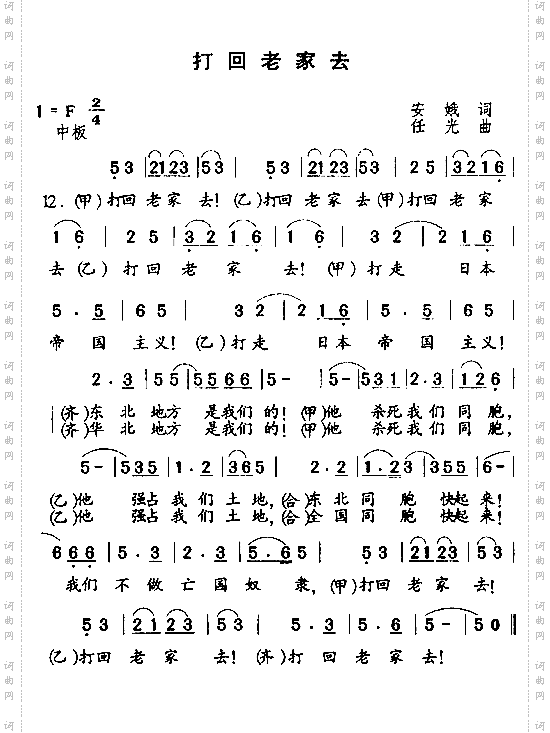 打回老家去
1=F 2/4
中板
安娥词
任光曲
5 3 | 2123 | 53 | 5 3 | 2123 | 53 | 2 5 | 3216 |
12.(甲)打回老家去!(乙)打回老家去(甲)打回老家
1 6 | 2 5 | 3 2 1 6 | 1 6 | 3 2 | 2 1 6 |
去(乙)打回老家去!(甲)打走日本
5 . 5 | 6 5 | 3 2 | 2 1 6 | 5 . 5 | 6 5
帝国主义!(乙)打走日本帝国主义!
2 . 3 | 5 5 | 5566 | 5 - | 5 - | 531 | 2 . 3 | 126 |
(齐)东北地方是我们的!(甲)他杀死我们同胞,
(齐)华北地方是我们的!(甲)他杀死我们同胞,
5 - | 535 | 1 . 2 | 365 | 2 . 2 | 1 . 23 | 355 | 6 - |
(乙)他强占我们土地,(合)东北同胞快起来!
(乙)他强占我们土地,(合)全国同胞快起来!
6 6 6 | 5 . 3 | 2 . 3 | 5 . 6 5 | 5 3 | 2123 | 5 3 |
我们不做亡国奴隶,(甲)打回老家去!
5 3 | 2123 | 5 3 | 5 . 3 | 5 . 6 | 5 - | 5 0 ‖
(乙)打回老家去!(齐)打回老家去!
词曲网